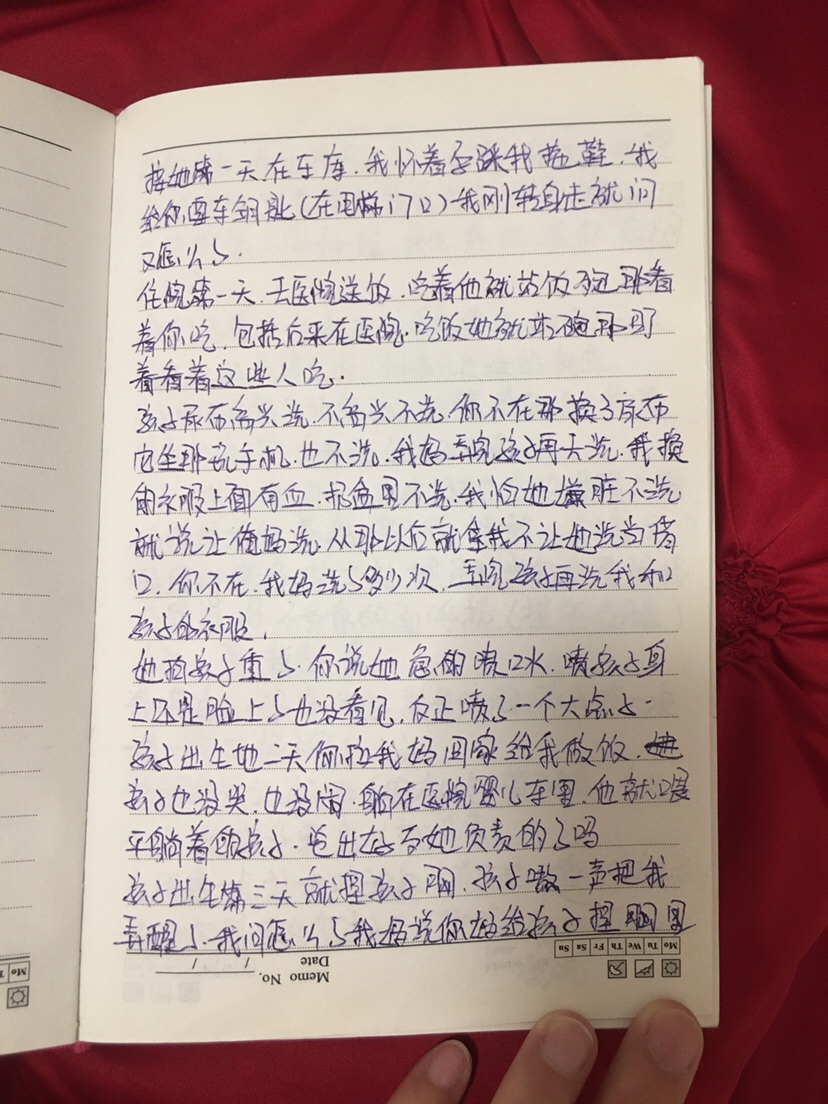 接她第一天在车库.我怀着孕踩我拖鞋.我
给你要车钥匙(在电梯门口)我刚转身走就问
又怎么了.
住院第一天.去医院送饭.吃着他就站饭 那看
着你吃.包括后来在医院.吃饭她就站 那盯
着看着这些人吃.
孩子尿布高兴洗.不高兴不洗.你不在那换了尿布
它坐那玩手机.也不洗。我妈弄完孩子再去洗.我换
的衣服上面有血.扔盆里不洗.我怕她嫌脏不洗
就说让俺妈洗.从那以后就拿我不让她洗当借
口.你不在.我妈洗了多少次.弄完孩子再洗我和
孩子的衣服.
她抱孩子重了.你说她 的喷口水.喷孩子身
上还是脸上了也没看见.反正喷了一个大点子.
孩子出生地二天你拉我妈回家给我做饭.
孩子也没哭.也没闹.躺在医院婴儿车里.他就喂
平躺着的孩子. 出在子 她负责的了吗
孩子出生第三天就捏孩子胸.孩子嗷一声把我
弄醒了.我问怎么了我妈说你妈给孩子捏胸里
Memo No.
Date / /
Mo Tu We Th Fr Sa Su
Mo T